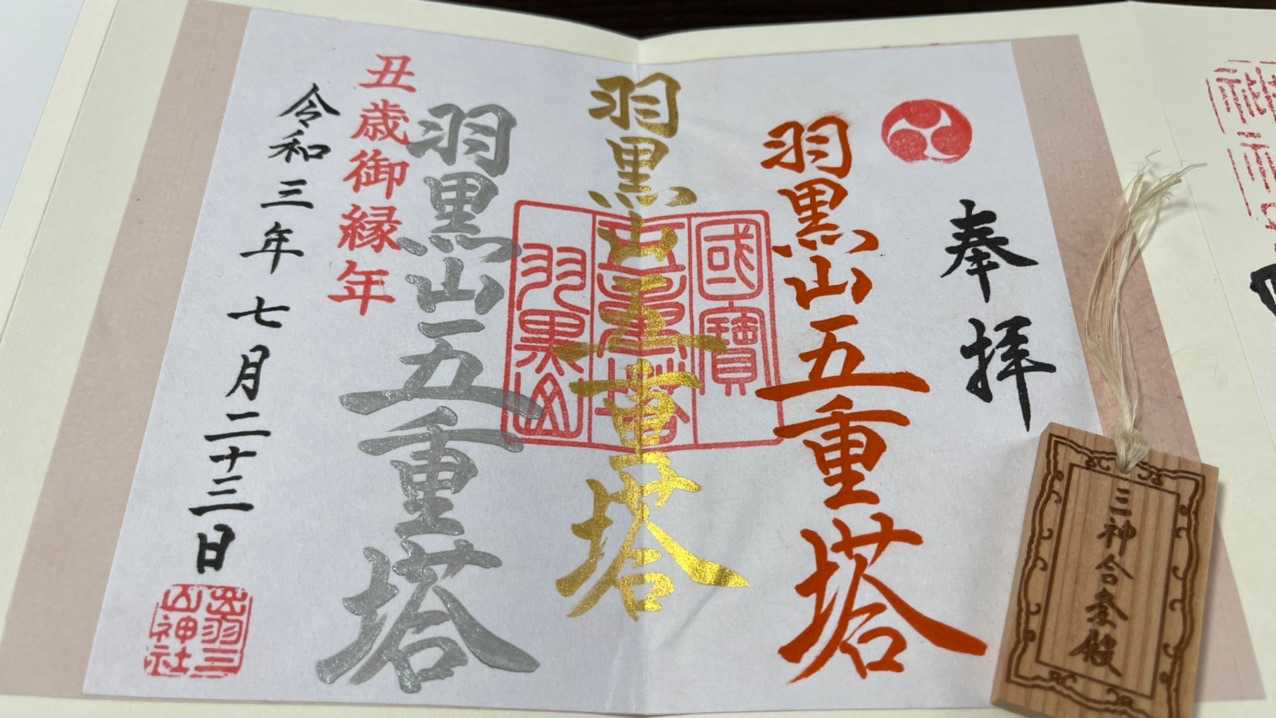 奉拝
羽黒山五重塔
羽黒山五重塔
羽黒山五重塔
國寶
五重塔
羽黒山
丑歳御縁年
令和三年七月二十三日
三神合祭殿